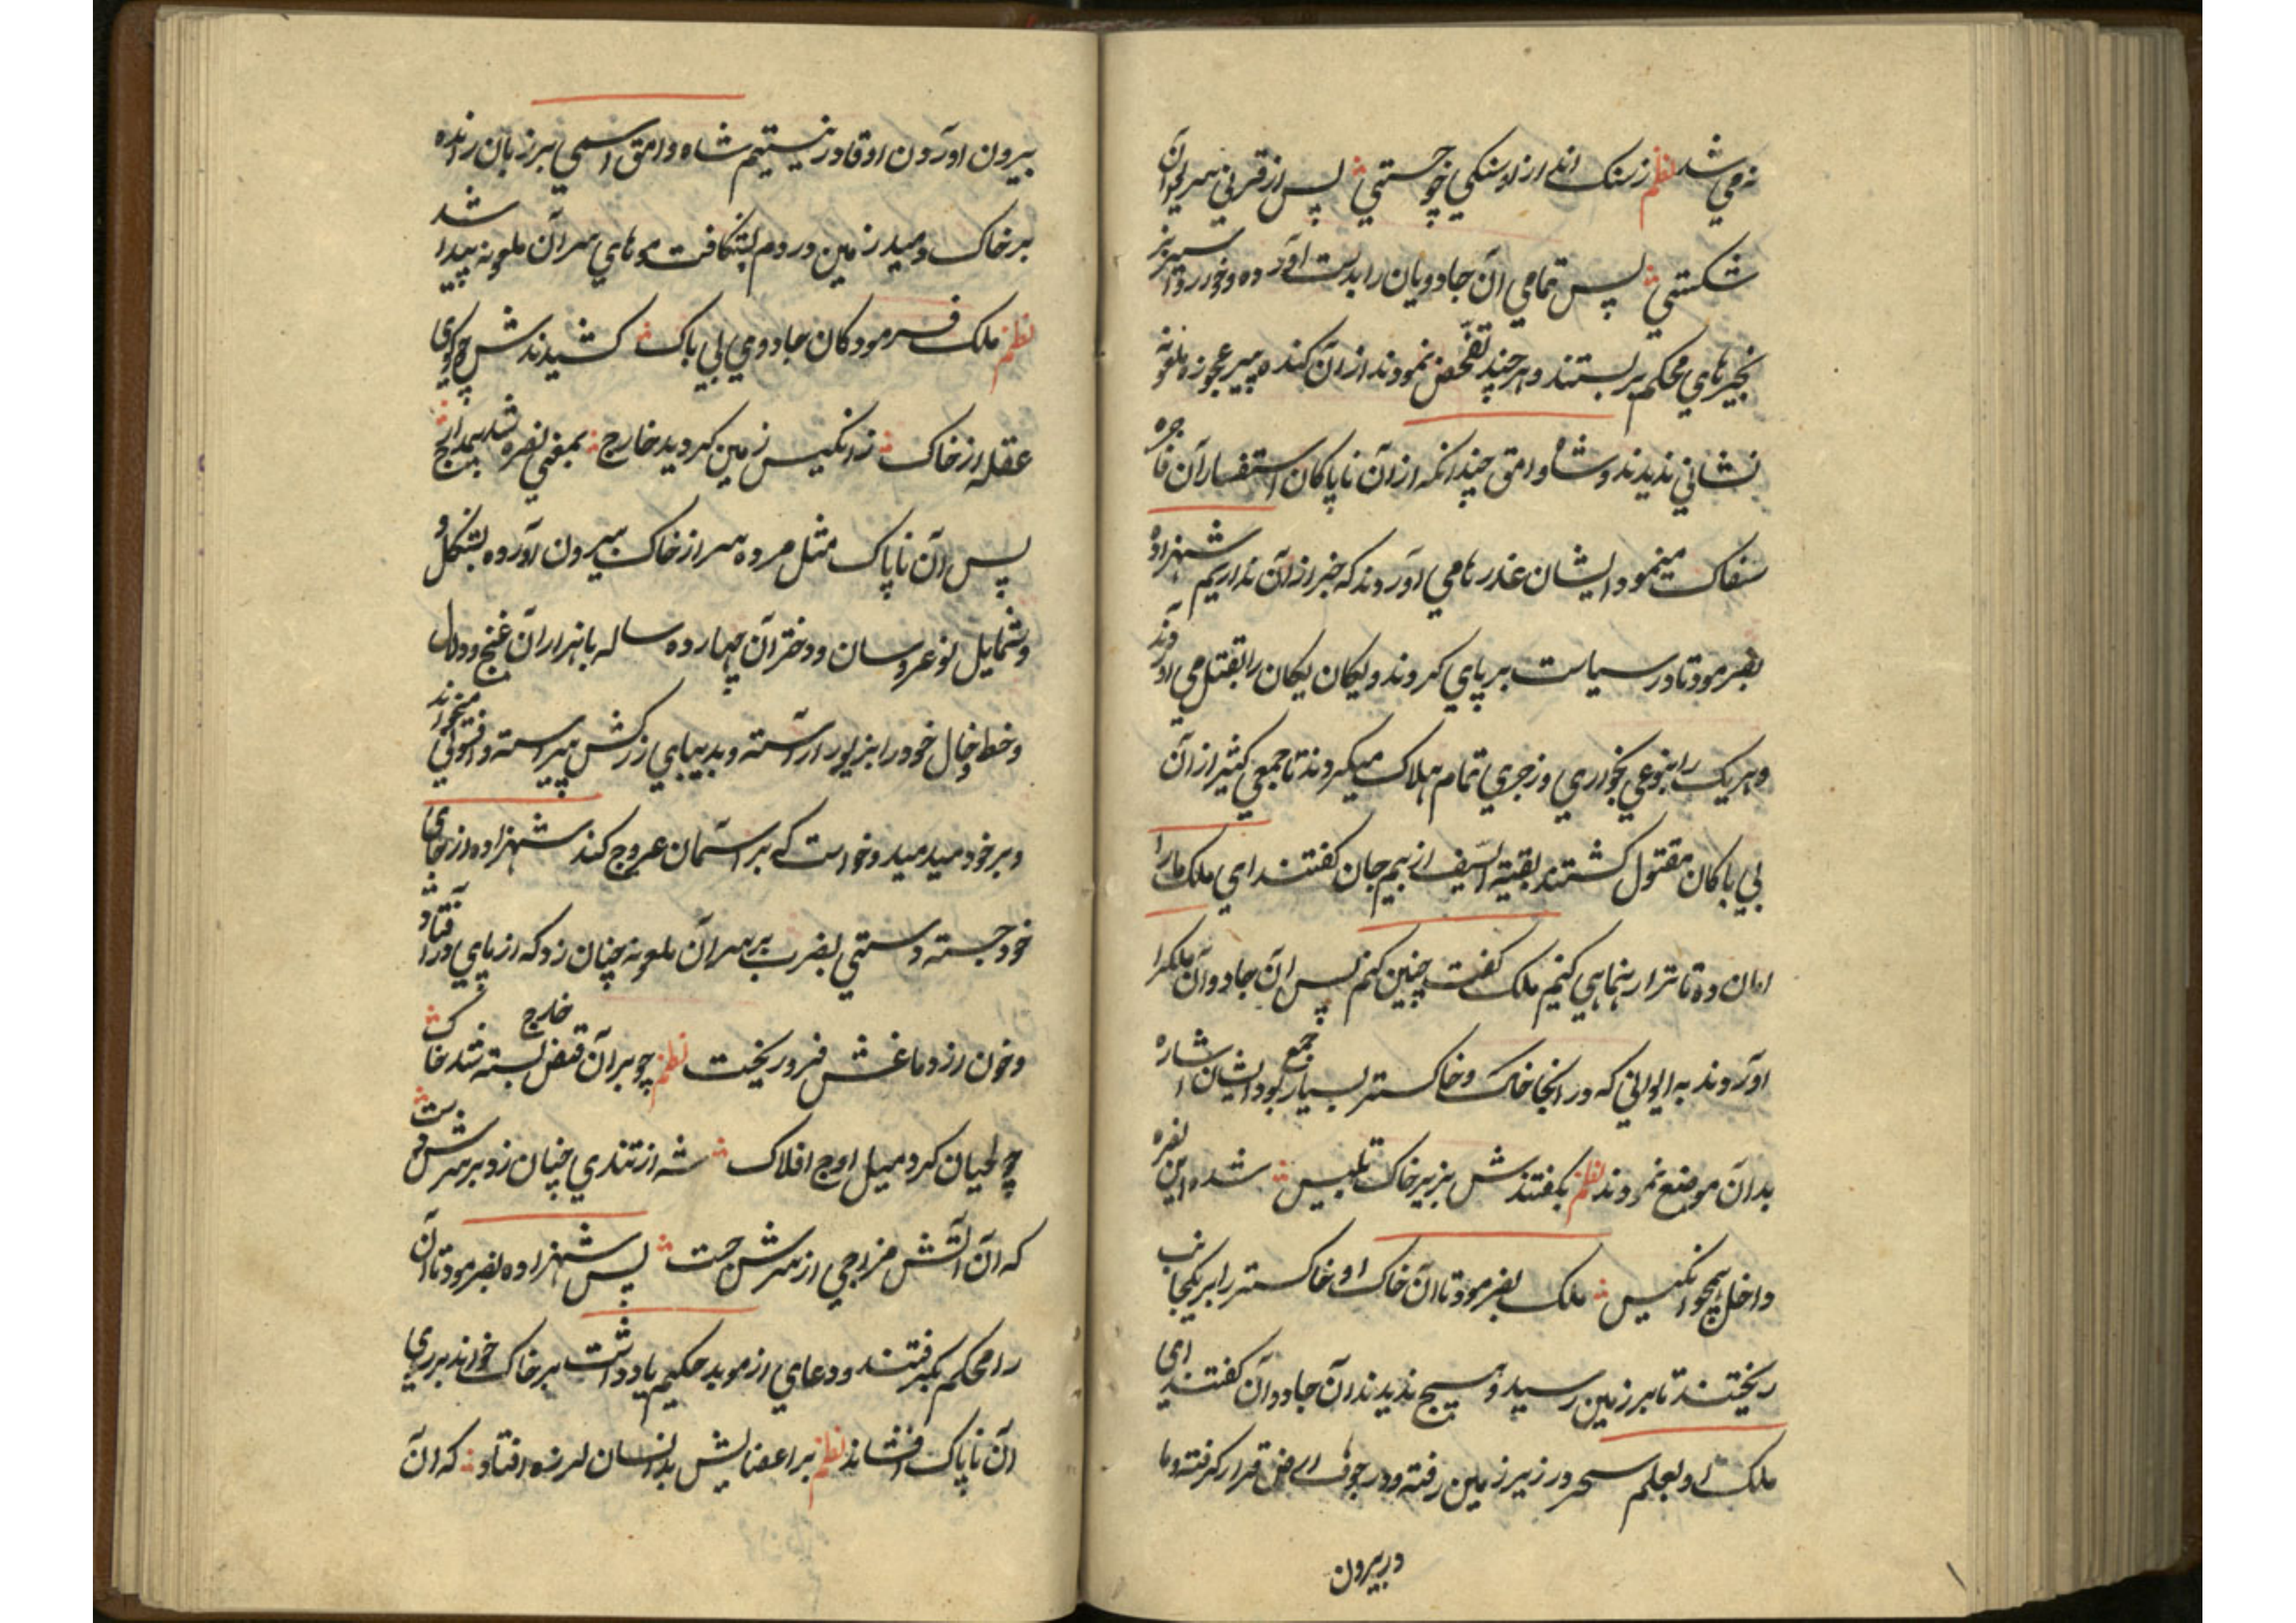 نه می شد نظم ز سنک اندازد او سنکی چو جستی پس از قربی سر لحوان
شکستی پس تمامی ان جادویان را بدست آورده و خود رو
نجیرهای محکم بر بستند و هر چند تفحص نمودند از آن کنده پیر عجوزه ملعونه
نشانی ندیدند و شاه وامق چندانکه از ان ناپاکان استفسار آن فاجره
سفاک مینمود ایشان عذرها می آوردند که خبر از آن نداریم شهزاده
بفرمود تا در سیاست بر پای کردند و یکان یکان را بقتل می آوردند
و هر یک را بنوعی بخواری و زجری تمام هلاک میکردند تا جمعی کثیر از آن
بی باکان مقتول کشتند بقیة السیف از بیم جان کفتند ای ملک ما را
امان ده تا ترا رهنمایی کنیم ملک کفت چنین کنم پس ان جادوآن ملکرا
آوردند به ایوانی که در انجا خاک و خاکستر بسیار جمع بود ایشان اشاره
بدان موضع نمودند نظم بکفتندش بزیر خاک تلبیس شده این نفره
داخل همچو انکیس ملک بفرمود تا ان خاک او خاکستر را بر یکجانب
ریختند تا بر زمین رسید و هیچ ندیدند ان جادوآن کفتند ای
ملک او بعلم سحر در زیر زمین رفته و در جوف ارض قرار کرفته و ما
در بیرون
بیرون آوردن او قادر نیستیم شاه وامق اسمی بر زبان رانده
بر خاک دمید زمین در دم بشکافت موهای سر آن ملعونه پیدا شد
نظم ملک فرمود کان جادوی بی باک کشیدندش چو کوی
عقله از خاک ز انکیس زمین کردید خارج بمعنی نفره شد
پس ان ناپاک مثل مرده سر از خاک بیرون آورده بشکل و
و شمایل نو عروسان و دختران چهارده ساله با هزاران غنج و دلال
و خط و خال خود را بزیور آراسته و بدیبای زرکش پیراسته و افسونی میخواند
و بر خود میدمید و خواست که بر اسمان عروج کند شهزاده از جای
خود جسته و ستی بضرب بر سر آن ملعونه چنان زد که از پای در افتاد
و خون از دماغش فرو ریخت نظم چو بر آن قبض بسته شد خارج خاک
چو لحیان کرد میل اوج افلاک شه از تندی چنان زد بر سرش دست
که ان اتش مزاجی از سرش جست پس شهزاده بفرمود تا ان
را محکم بکرفتند و دعای از موبد حکیم یاد داشت بر خاک خواند بر روی
ان ناپاک افشاند نظم بر اعضایش بدانسان لرزه افتاد که ان